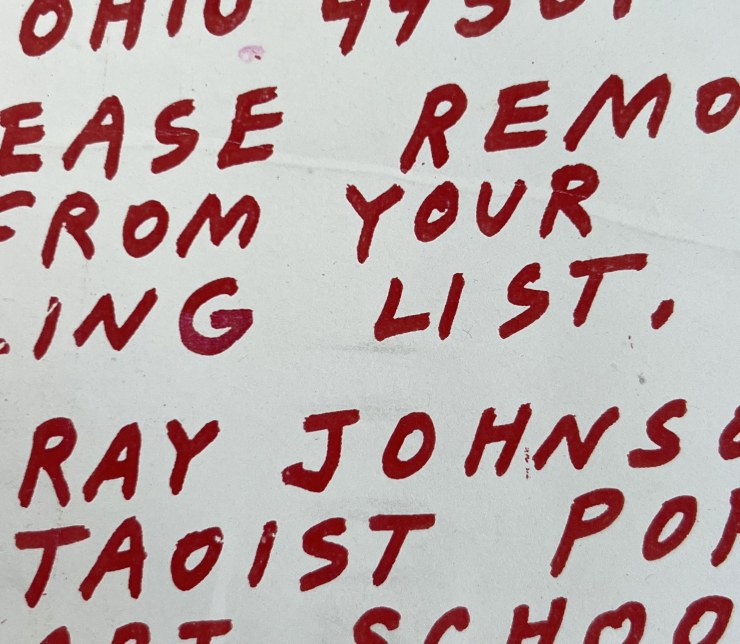 OHIO 44501
EASE REMO
FROM YOUR
ING LIST.
RAY JOHNSO
TAOIST POP
ART SCHOO